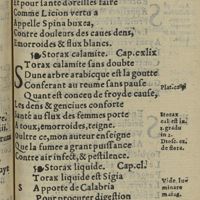 Et pour fanté doreilles faire
Comme Licion verto a
Appelle Spina buxea,
Contre douleurs des caues dens,
Emorroides & flux blancs.
Storax calamite. Cap.cxlix.
STorax calamite sans doubte
Sune arbre arabicque est la goutte
Conferant au reume sans pause
Quant est concreu de froyde cause,
Les dens & genciues conforte
Santé au flux des femmes porte
A toux, emorroides, teigne,
Oultre ce, mon aucteur enseigne
Que la fumee a grant puissance
Contre air infect, & pestilence.
Storax liquide. Cap.cl.
Torax liquide est Sigia
Apporte de Calabria
Pour procurer digestion
Plat.ca.
Storax
cal.est in
2. gradu
in 2.
Diosc. ca.
de stora.
Vide lu-
minare
maius.